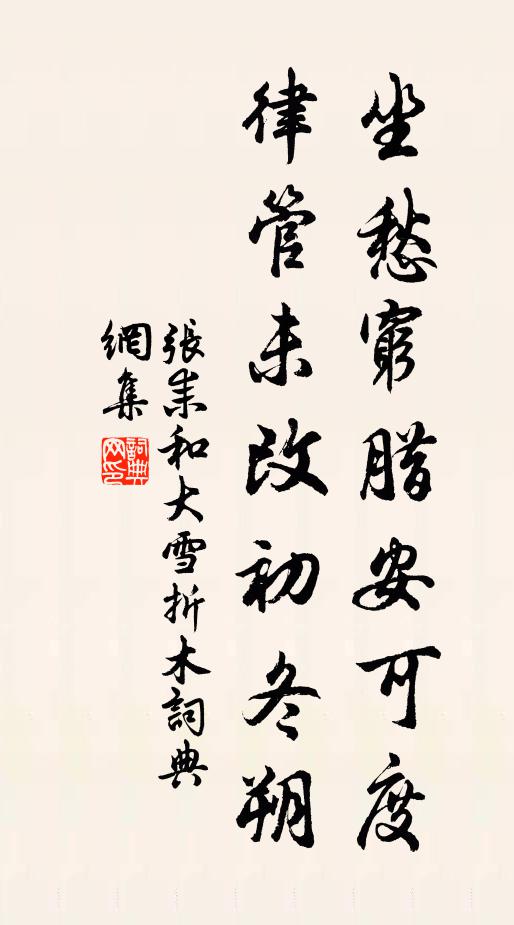 坐愁窮腊安可度
律管未改初冬朔
張耒和大雪折木詞典
網集
詞典
网印